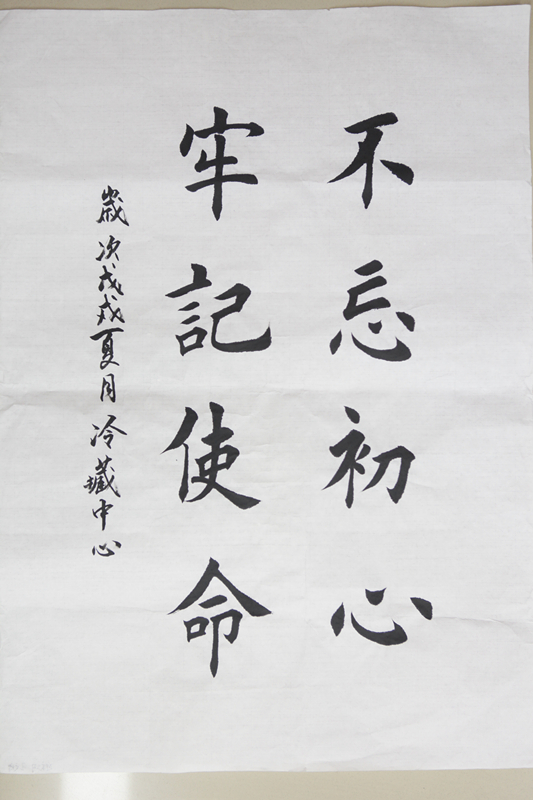 不忘初心
牢記使命
歲次戊戌夏月冷藏中心